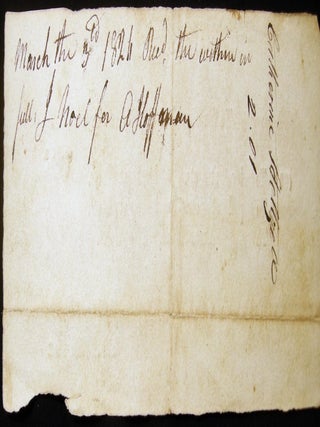 March the 3rd 1824 Recd the within in
full J Noel for A Hoffman
Catherine
2.01